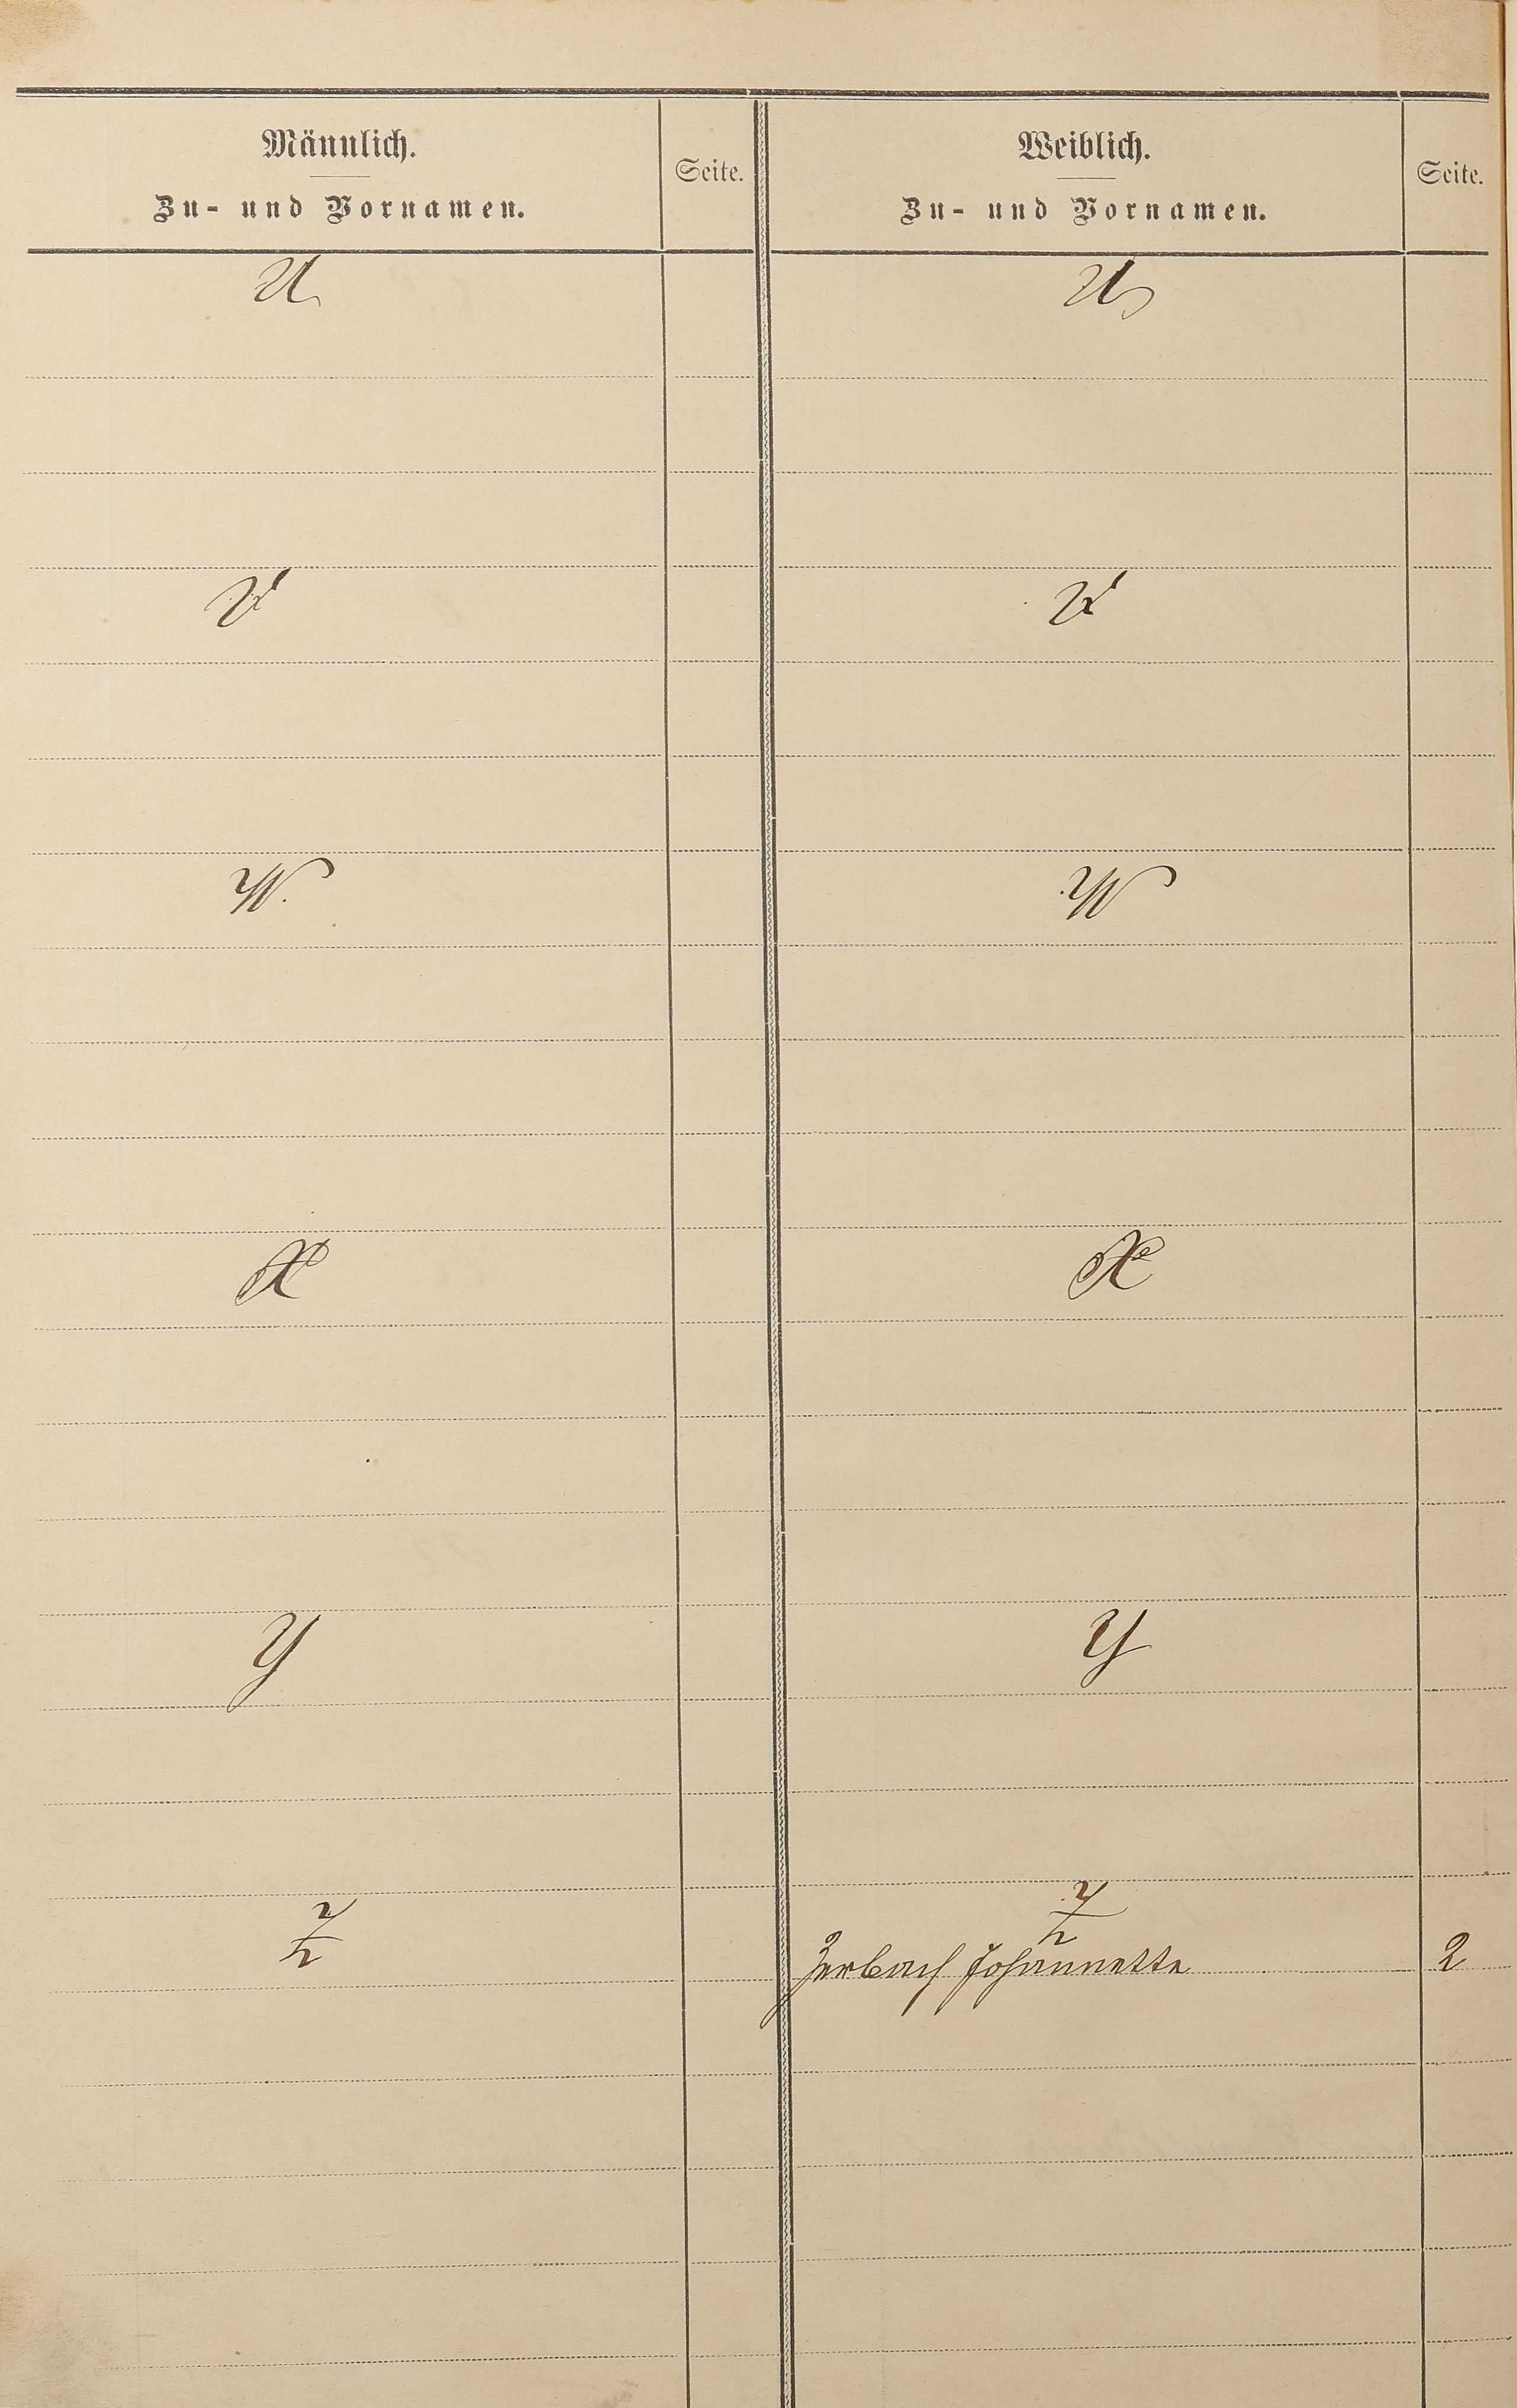 Männlich.
Zu- und Vornamen.
Seite.
Weiblich.
Zu- und Vornamen.
Seite.
U
U
V
V
W.
W
X
X
Y
Y
Z
Z
Zerbach Johannette 2